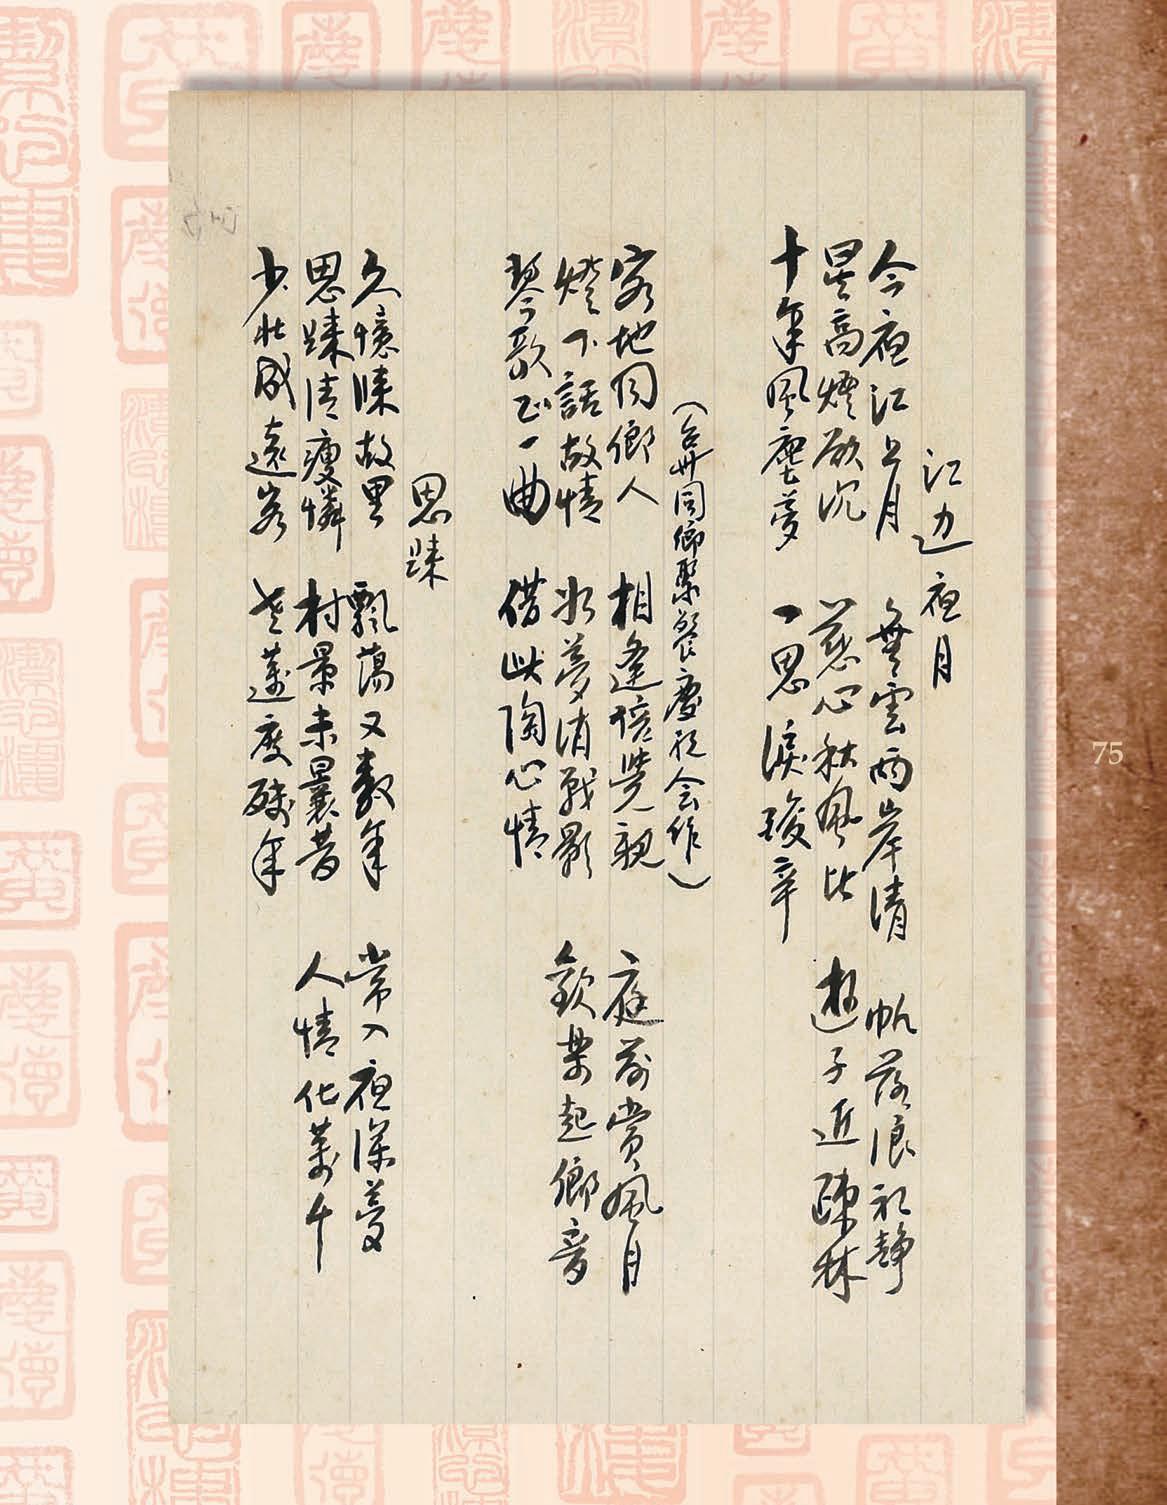 江边夜月
今夜江上月 無雲两岸清 帆落浪初静
星高煙欲沉 慈心秋風比 遊子近疎林
十年風塵夢 一思淚酸辛
（台州同鄉聚餐慶祝会作）
客地同鄉人 相逢倍覺親 庭前賞風月
燈下話故情 如夢消戰影 歡樂起鄉音
琴歌正一曲 借此陶心情
思踈
久憶踈故里 飄蕩又數年 常入夜深夢
思踈清瘦憐 村景未曩昔 人情化萬千
少壯成遠客 老邁度殘年
75